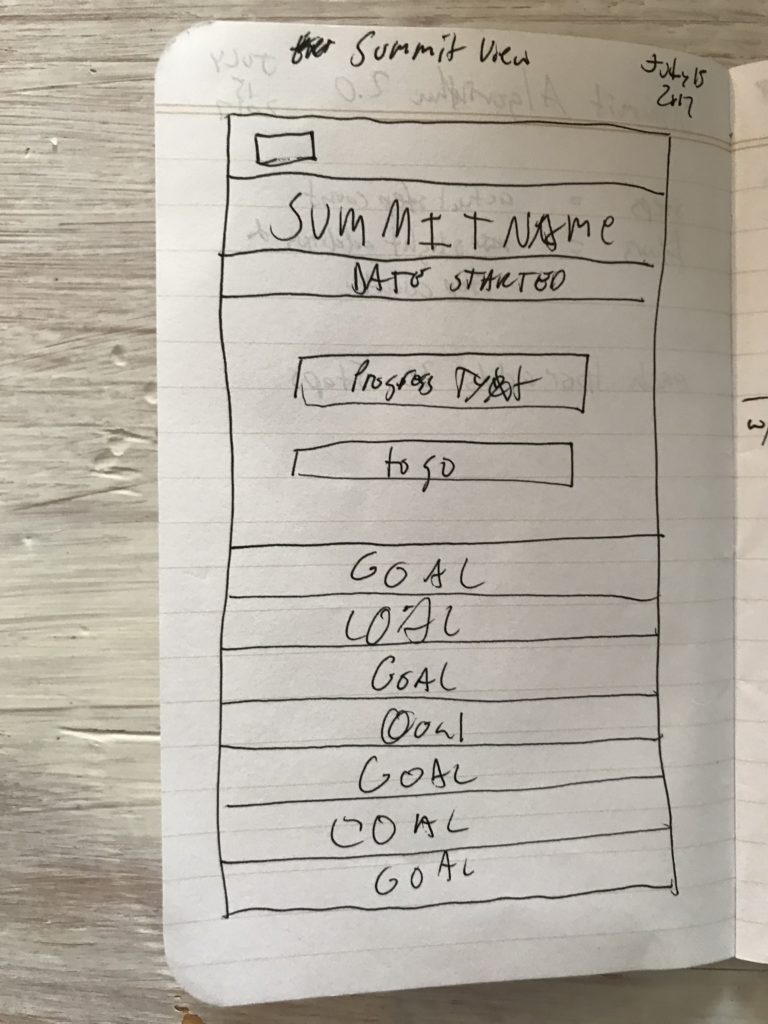 Summit View
July 15
2017
SUMMIT NAME
DATE STARTED
Progress
to go
GOAL
GOAL
GOAL
Goal
GOAL
GOAL
GOAL